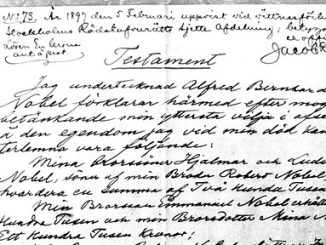 No 73. År 1897 den 5 Februari uppvist vid vittnesförh
Stockholms Rådstufvurätts sjette Afdelning; betyga
Testament
Jag undertecknad Alfred Bernhard
Nobel förklarar härmed efter mog
betänkande min yttersta vilja i afse
å den egendom jag vid min död kan
terlemna vara följande:
Mina Brorsöner Hjalmar och Lud
Nobel, söner af min Broder Robert Nobel,
hvardera en summa af Två Hundra Tusen
Min Brorson Emmanuel Nobel erhåll
Hundra Tusen och min Brorsdotter Mina N
Ett Hundra Tusen Kronor;